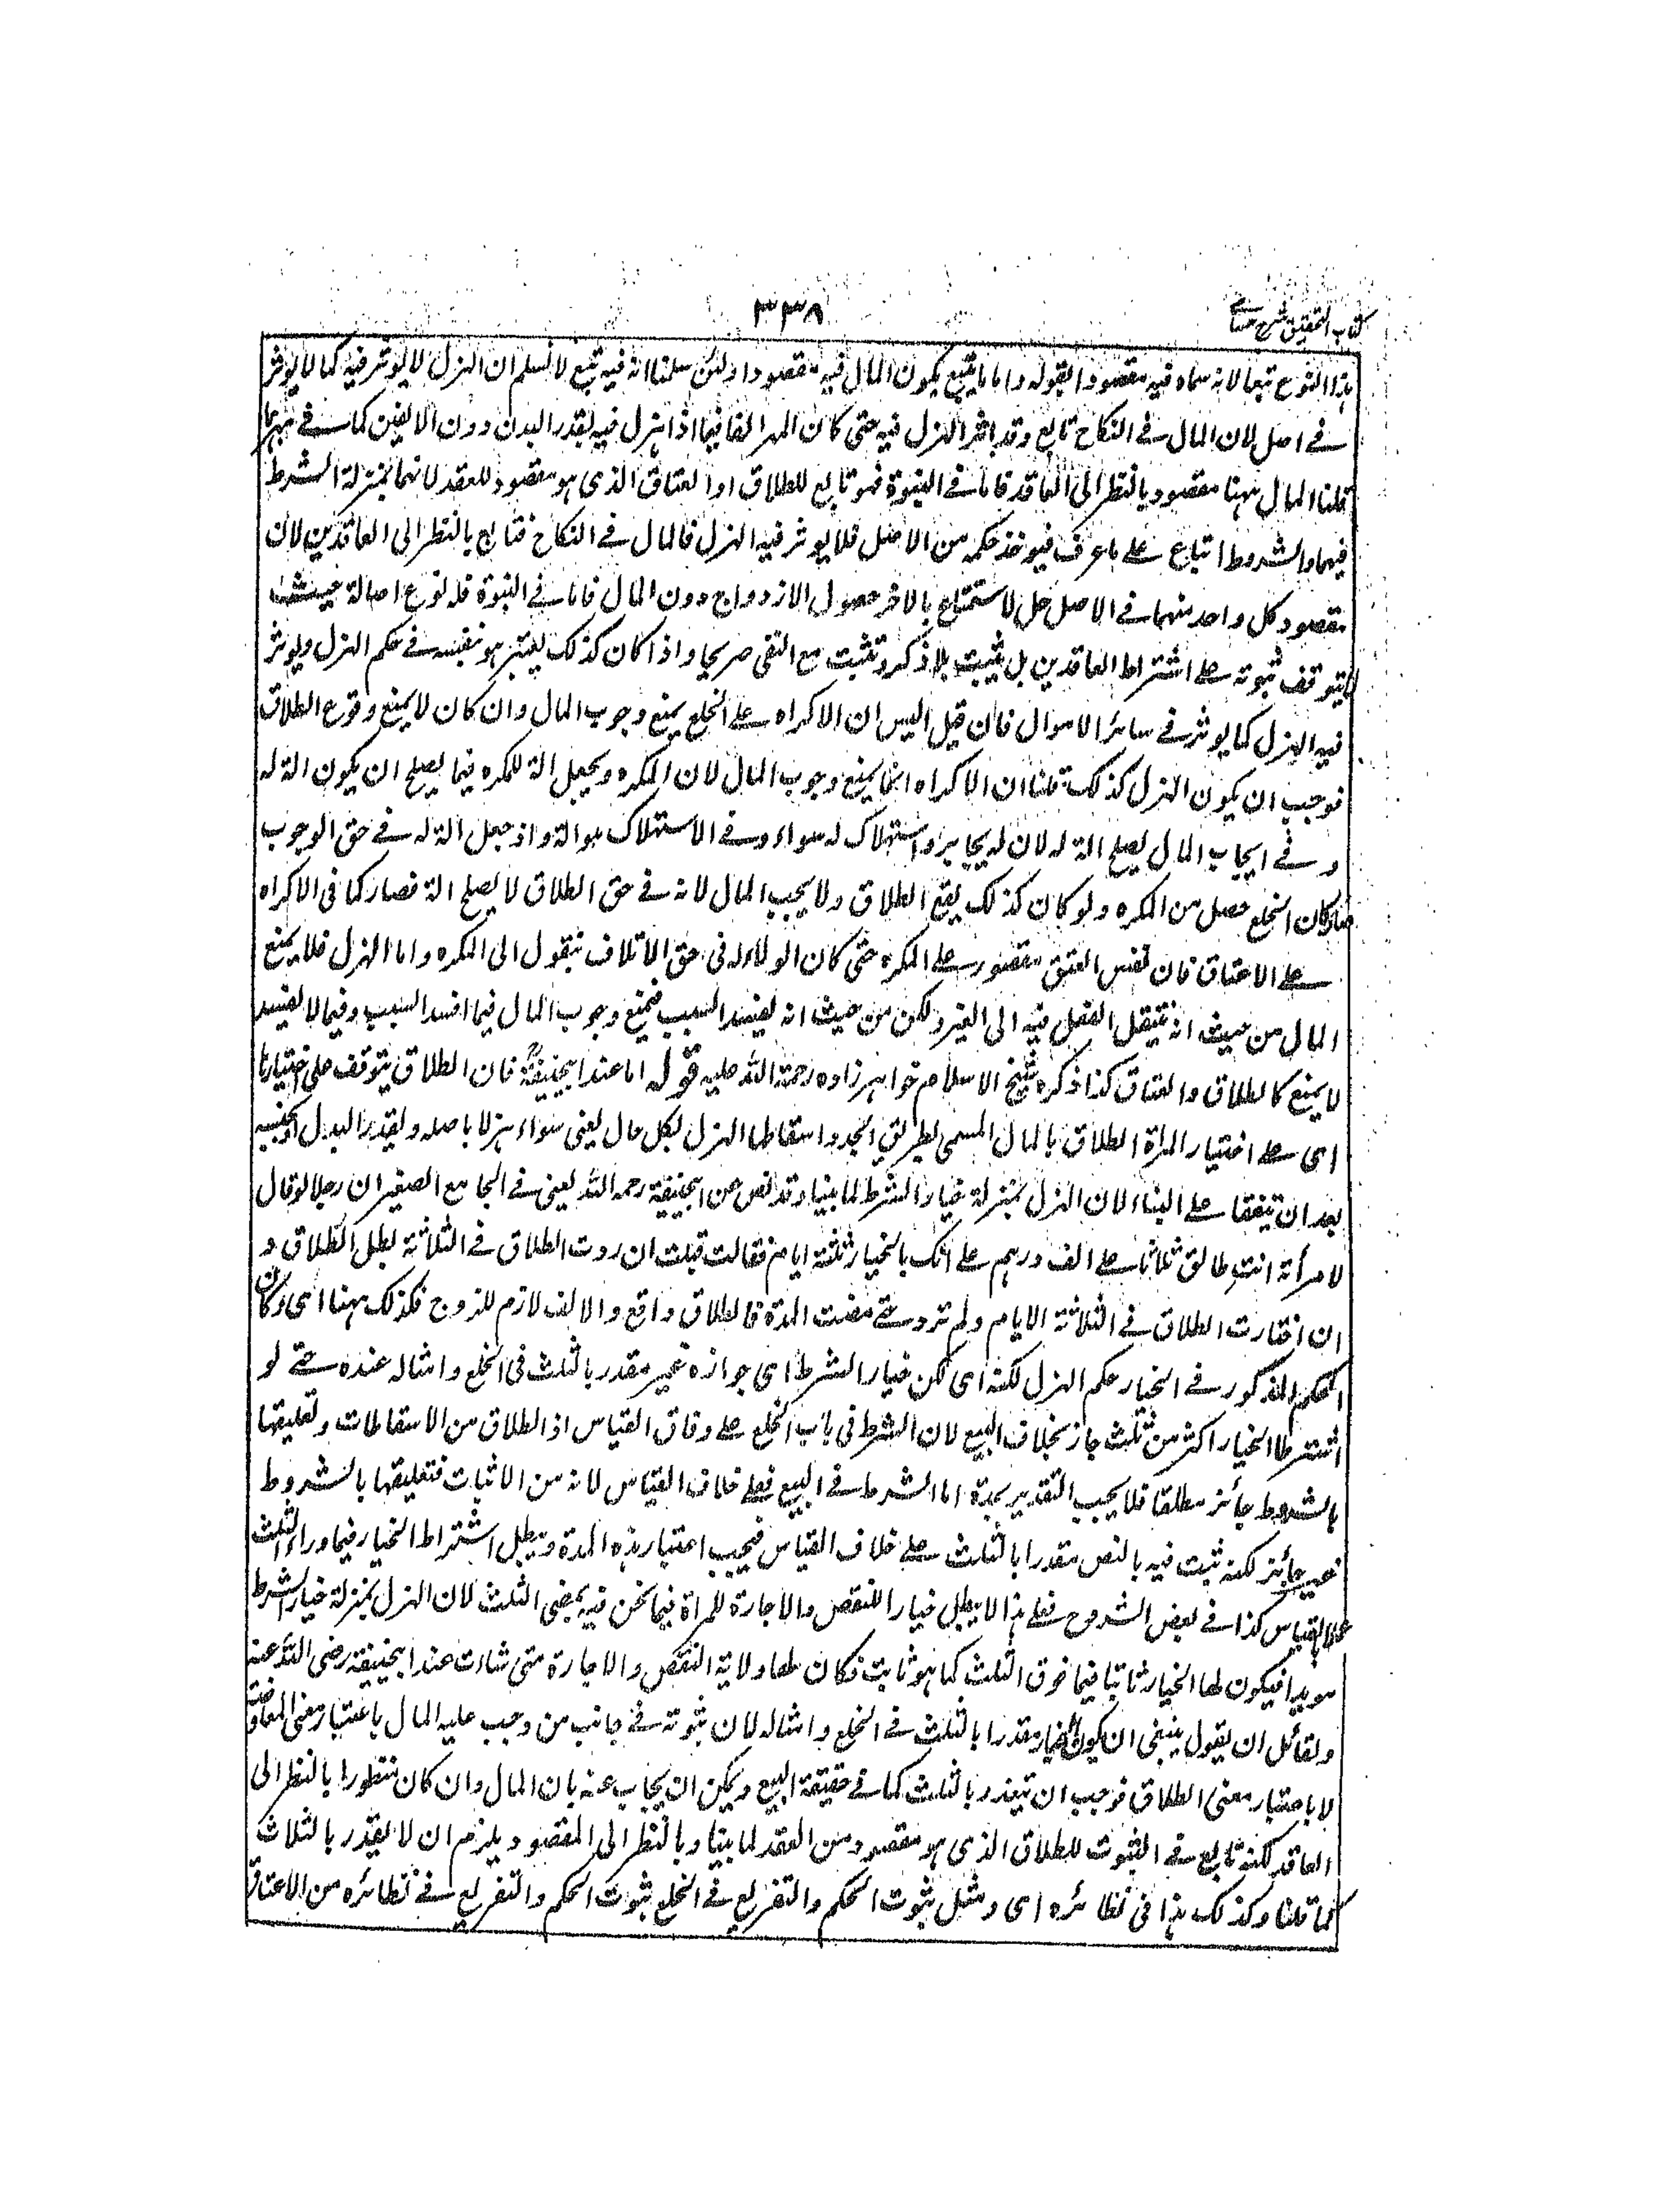 كتاب التحقيق شرح حسامي
٣٣٨
هذا النوع تبعا لانه سماه فيه مقصودا بقوله واما ما يقع يكون المال فيه مقصودا ولئن سلمنا انه فيه تبع لا نسلم ان الهزل لا يوثر فيه كما لا يوثر
في اصل لان المال في النكاح تابع وقد اثر الهزل فيه حتى كان المهر الفا فيما اذا هزل فيه بقدر البدل دون الالفين كما في مهرها
قلنا المال ههنا مقصود بالنظر الى العاقد فاما في الثبوت فهو تابع للطلاق او العتاق الذى هو مقصود للعقد لانهما بمنزلة الشرط
فيهما والشروط اتباع على ما عرف فيوخذ حكمه من الاصل فلا يوثر فيه الهزل فالمال في النكاح فتابع بالنظر الى العاقدين لان
مقصود كل واحد منهما في الاصل حل الاستمتاع بالاخر حصول الازدواج دون المال فاما في الثبوة فله نوع اصالة حيث
لا يتوقف ثبوته على اشتراط العاقدين بل يثبت بلا ذكر وتثبت مع النفى صريحا واذا كان كذلك يعتبر هو بنفسه في حكم الهزل ويوثر
فيه الهزل كما يوثر في سائر الاموال فان قيل اليس ان الاكراه على الخلع يمنع وجوب المال وان كان لا يمنع وقوع الطلاق
فوجب ان يكون الهزل كذلك قلنا ان الاكراه انما يمنع وجوب المال لان المكره ويجعل الة للمكره فيما يصلح ان يكون الة له
و في ايجاب المال يصلح الة له لان له يجابر واستهلاك له سواء وفي الاستهلاك هو الة واذ جعل الة له في حق الوجوب
صار كان الخلع حصل من المكره ولو كان كذلك يقع الطلاق ولا يجب المال لانه في حق الطلاق لا يصلح الة فصار كما فى الاكراه
على الاعتاق فان نفس العتق مقصور على المكره حتى كان الولاء له فى حق الاتلاف ينقول الى المكره واما الهزل فلا يمنع
المال من حيث انه ينتقل الفعل فيه الى الغير ولكن من حيث انه يفسد السبب فيمنع وجوب المال فيما افسد السبب وفيما لا يفسد
لا يمنع كالطلاق والعتاق كذا ذكره شيخ الاسلام خواهر زاده رحمة الله عليه قوله اما عند ابيحنيفة فان الطلاق يتوقف على اختيارها
اى على اختيار المراة الطلاق بالمال المسمى بطريق الجد واسقاط الهزل بكل حال يعنى سواء هزلا باصله وبقدر البدل او بجنسه
بعد ان يتفقا على البناء لان الهزل بمنزلة خيار الشرط لما بينا وقد نص عن ابيحنيفة رحمه الله يعنى في الجامع الصغير ان رجلا لو قال
لامرأته انت طالق ثلاثا على الف درهم على انك بالخيار ثلثة ايام فقالت قبلت ان ردت الطلاق في الثلاثة بطل الطلاق و
ان اختارت الطلاق في الثلاثة الايام ولم ترد حتى مضت المدة فالطلاق واقع والالف لازم للزوج فكذلك ههنا اى وكان
الحكم المذكور في الخيار حكم الهزل لكنه اى لكن خيار الشرط اى جوازه غير مقدر بالثلث فى الخلع وامثاله عنده حتى لو
اشترطا الخيار اكثر من ثلث جاز بخلاف البيع لان الشرط فى باب الخلع على وفاق القياس اذ الطلاق من الاسقاطات وتعليقها
بالشروط جائز مطلقا فلا يجب التقدير بمدة اما الشرط في البيع فعلى خلاف القياس لانه من الاثبات فتعليقها بالشروط
غير جائز لكنه ثبت فيه بالنص مقدرا بالثلث على خلاف القياس فيجب اعتبار هذه المدة ويبطل اشتراط الخيار فيما وراء الثلث
عملا بالقياس كذا في بعض الشروح فعلى هذا لا يبطل خيار النقض والاجازة للمراة فيما نحن فيه بمضى الثلث لان الهزل بمنزلة خيار الشرط
موبدا فيكون لها الخيار ثابتا فيما فوق الثلث كما هو ثابت فكان لها ولاية النقض والاجازة متى شاءت عند ابيحنيفة رضى الله عنه
ولقائل ان يقول ينبغى ان يكون الخيار مقدرا بالثلث في الخلع وامثاله لان ثبوته في جانب من وجب عليه المال باعتبار معنى المعاوضة
لا باعتبار معنى الطلاق فوجب ان تيقدر بالثلث كما في حقيقة البيع ويمكن ان يجاب عنه بان المال وان كان منظورا بالنظر الى
العاقد لكنه تابع في الثبوت للطلاق الذى هو مقصود من العقد لما بينا وبالنظر الى المقصود يلزم ان لا يقدر بالثلاث
كما قلنا وكذلك هذا فى نظائره اى ومثل ثبوت الحكم والتفريع في الخلع ثبوت الحكم والتفريع في نظائره من الاعتاق